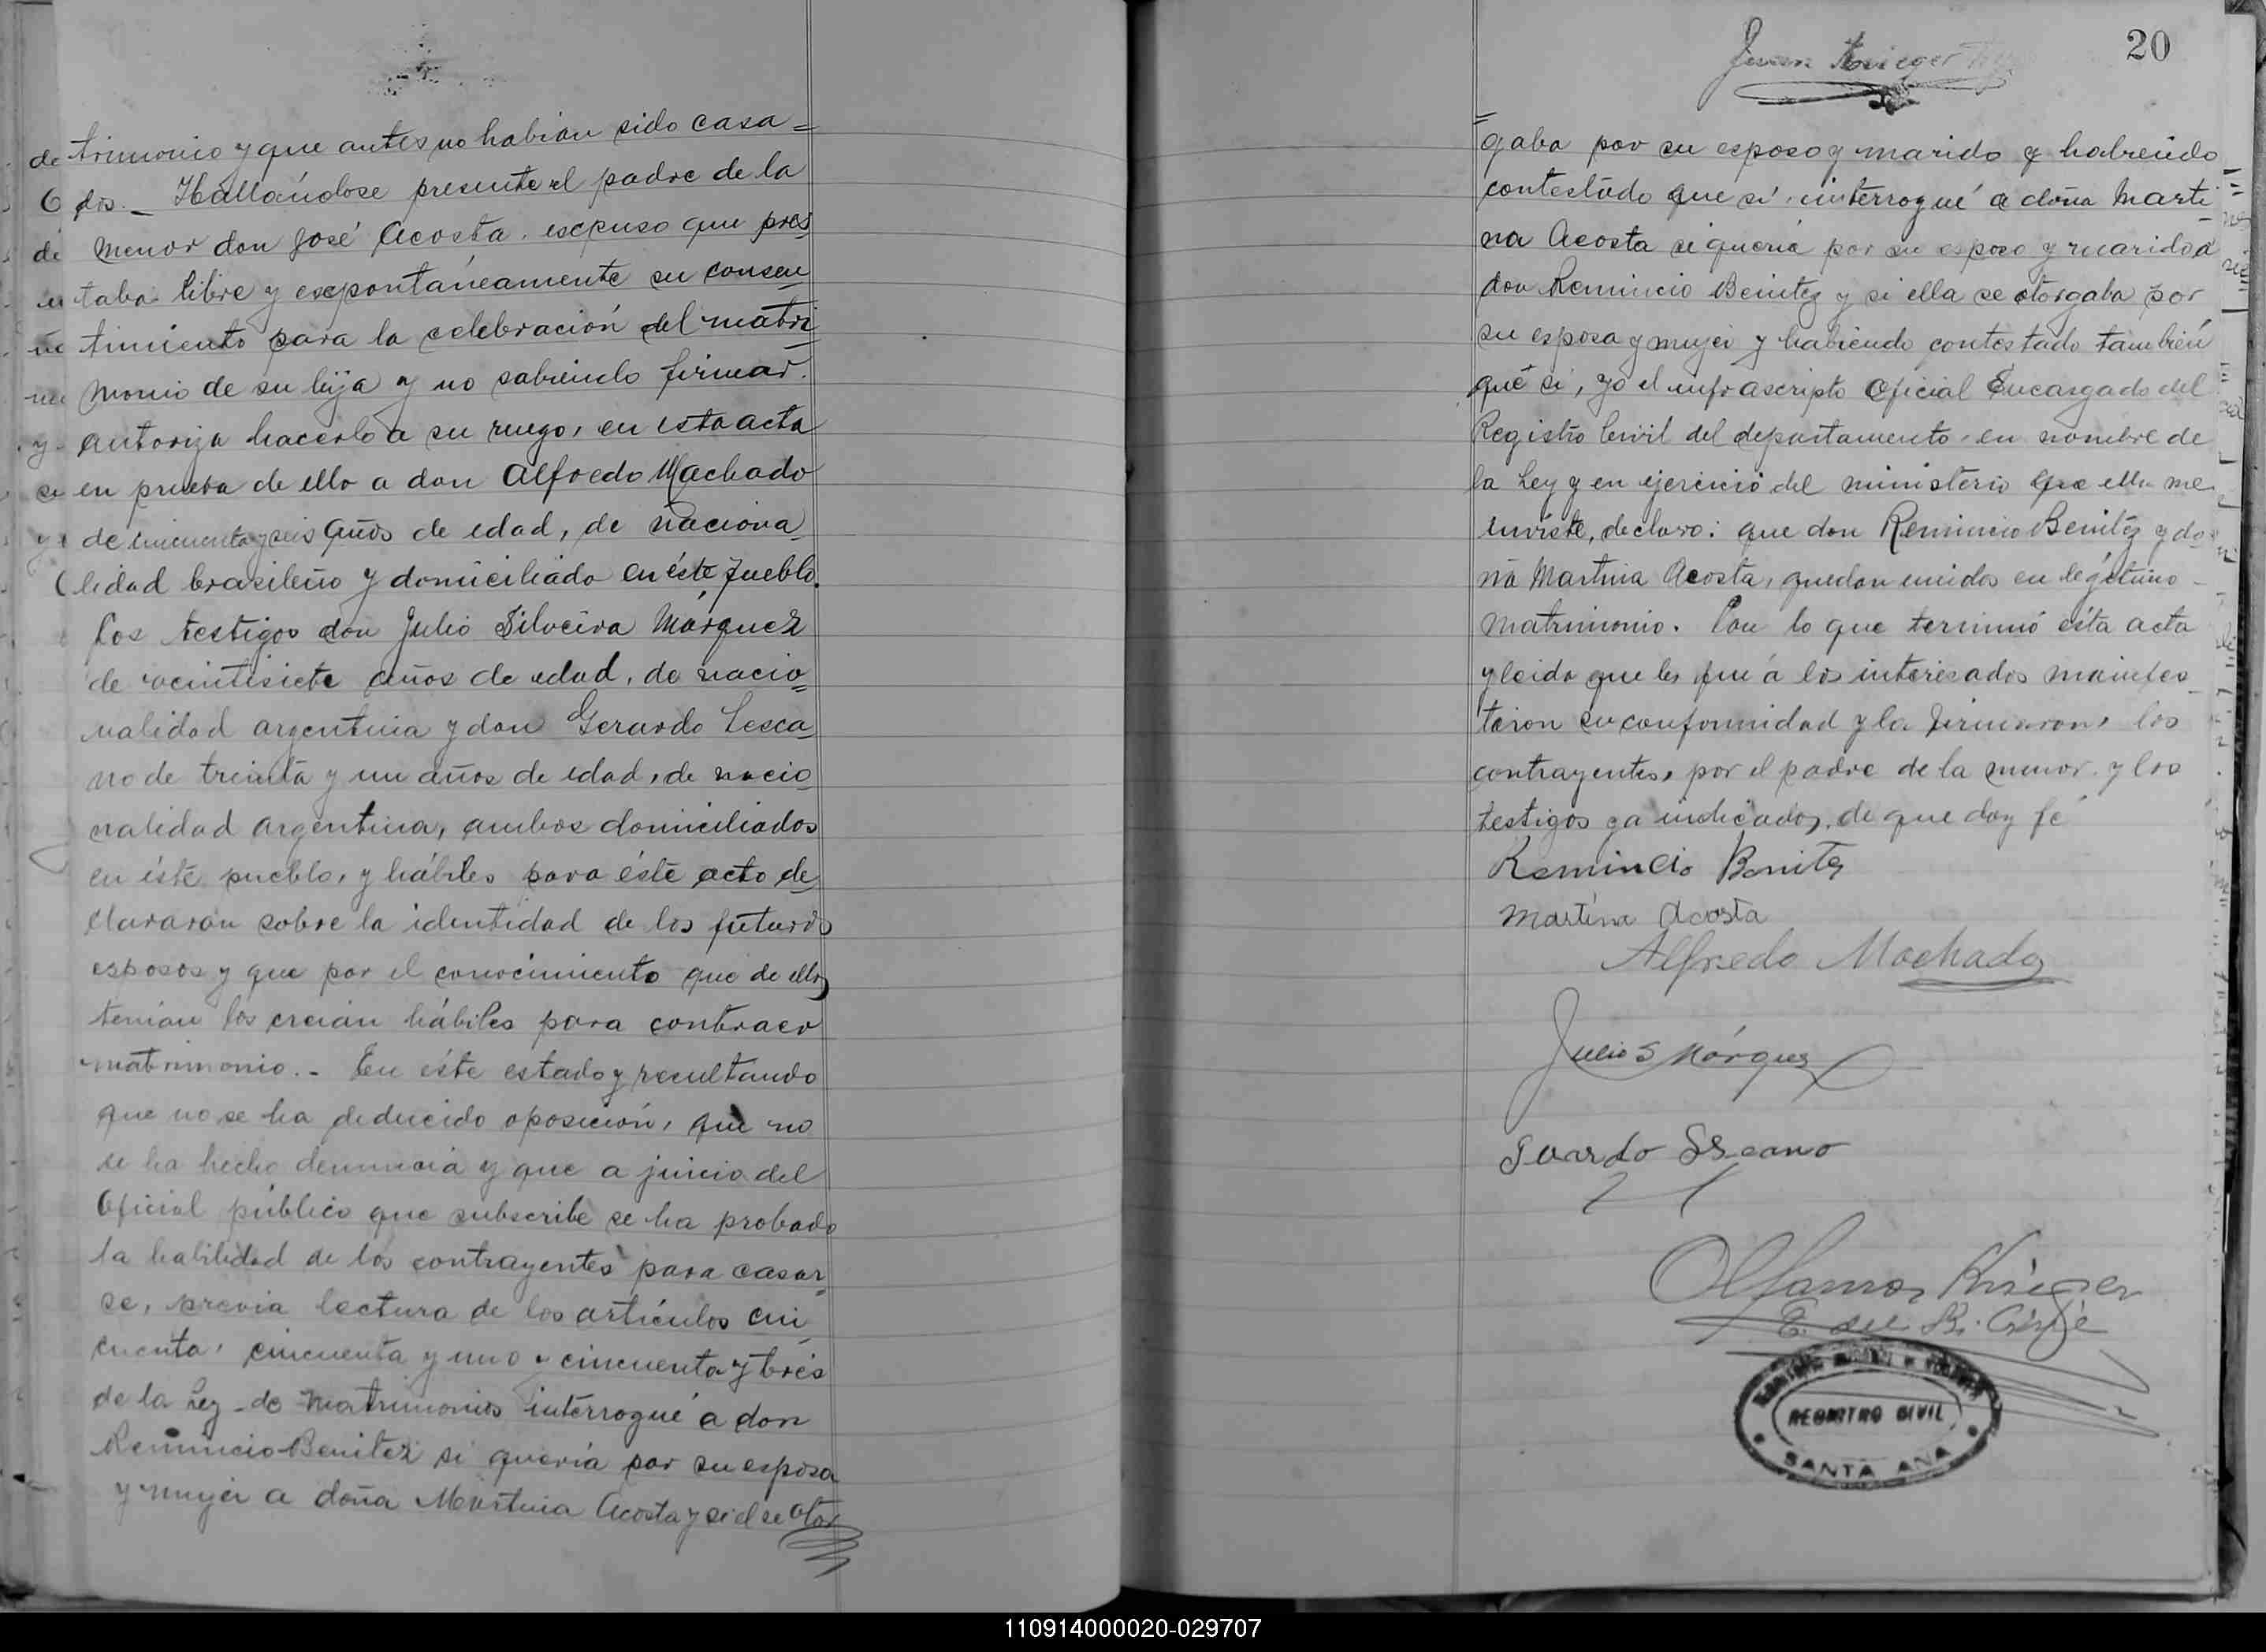 trimonio y que antes no habían sido casa=
dos._ Hallándose presente el padre de la
menor don José Acosta, escpuso que pres
taba libre y escpontáneamente su consen
timiento para la celebración del matri
monio de su hija y no sabiendo firmar.
autoriza hacerlo a su ruego, en esta acta
en prueba de ello a don Alfredo Machado
de cincuenta y seis años de edad, de naciona
lidad brasileño y domiciliado en éste pueblo.
Los testigos don Julio Silveira Márquez
de veintisiete años de edad, de nacio=
nalidad argentina y don Gerardo Lesca
no de treinta y un años de edad, de nacio
nalidad argentina, ambos domiciliados
en éste pueblo, y hábiles para éste acto de
clararon sobre la identidad de los futuros
esposos y que por el conocimiento que de ellos
tenían los creían hábiles para contraer
matrimonio.- En éste estado y resultando
que no se ha deducido oposición, que no
se ha hecho denuncia y que a juicio del
Oficial público que subscribe se ha probado
la habilidad de los contrayentes para casar
se, previa lectura de los artículos cin
cuenta, cincuenta y uno y cincuenta y tres
de la Ley de Matrimonios interrogué a don
Remincio Benitez si quería por su esposa
y mujer a doña Martina Acosta y si el se otor
20
Juan Krieger
gaba por su esposo y marido y habiendo
contestado que sí, interrogué a doña Marti
na Acosta si quería por su esposo y marido a
don Remincio Benitez y si ella se otorgaba por
su esposa y mujer y habiendo contestado también
que si, yo el infrascripto Oficial Encargado del
Registro Civil del departamento, en nombre de
la Ley y en ejercicio del ministerio que ella me
inviste, declaro: que don Remincio Benitez y do
ña Martina Acosta, quedan unidos en legítimo
matrimonio. Con lo que terminó ésta acta
y leída que les fué á los interesados manifes
taron su conformidad y la firmaron, los
contrayentes, por el padre de la menor y los
testigos ya indicados, de que doy fé
Remincio Benitez
Martina Acosta
Alfredo Machado
Julio S Márquez
Gerardo Lescano
Krieger
E. del R. Civil
REGISTRO CIVIL
SANTA ANA
110914000020-029707